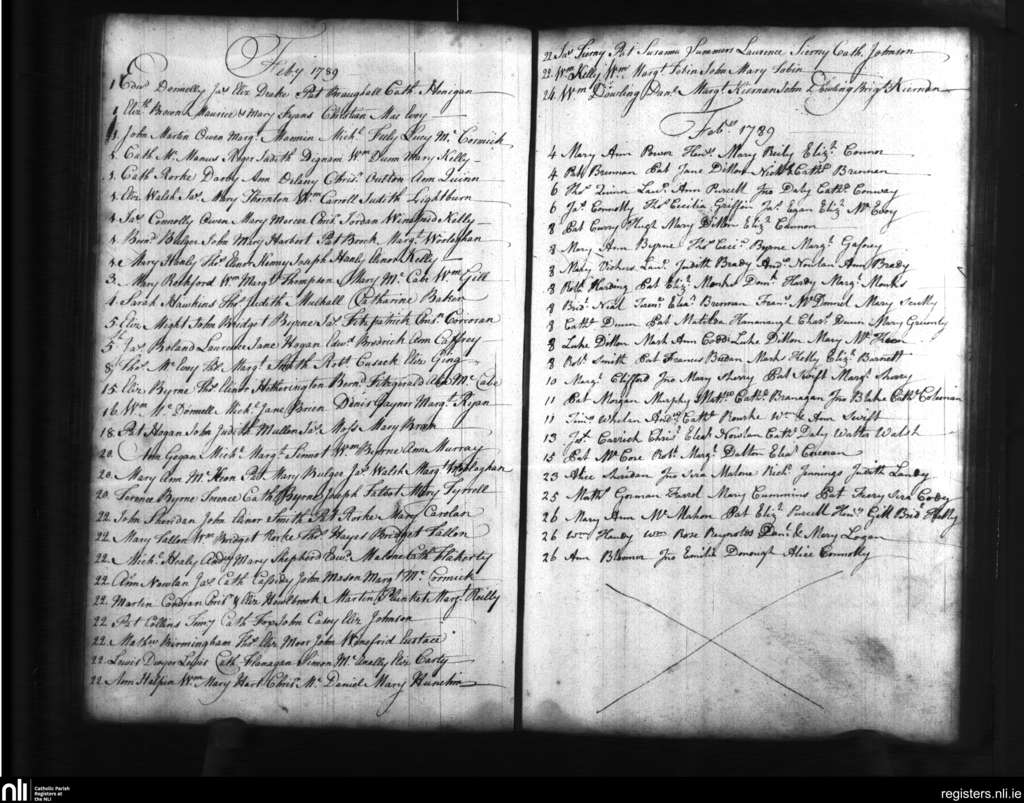 Feby 1789
1 Edwd Donnelly Jas Eliz Drake Pat Braughall Cath Horigan
1 Elizth Brown Maurice & Mary Ryans Christian Mac Evoy
1 John Martin Owen Margt Mannin Michl Feely Lucy Mc Cormick
1 Cath Mc Manus Roger Judith Dignam Wm Dunn Mary Kelly
1 Cath Rorke Darby Ann Delany Chrisr Oulton Ann Quinn
1 Eliz Walsh Jas Mary Thornton Wm Carroll Judith Lightburn
1 Jas Connolly Owen Mary Jordan Winefride Kelly
1 Bernd Bulger John Mary Harbert Pat Brock Margt Woolaghan
1 Mary Hanly Thos Elenor Kinney Joseph Hanly Elenor Kelly
3 Mary Rochford Wm Margt Thompson Mary Mc Cabe Wm Gill
1 Sarah Hawkins Thos Judith Mulhall Catharine Baker
5 Eliz John Bridget Byrne Jas Fitzpatrick Corcoran
5 Jas Roland Laurence Jane Hagan Lawe Brodrick Ann Caffrey
8 Thos Mc Evoy Thos Margt Smith Robt Cusack Eliz Ging
15 Eliz Byrne Thos Elinor Hetherington Bernd Fitzgerald Ann Mc Cabe
16 Wm Mc Donnell Michl Jane Breen Denis Gaynor Margt Ryan
18 Pat Hagan John Judith Mullen Jas Moss Mary Brown
20 Ann Gegan Michl Margt Sinnot Wm Byrne Ann Murray
20 Mary Ann Mc Keon Patt Mary Bulger Jas Walsh Margt Woolaghan
20 Terence Byrne Terence Cath Byrne Joseph Talbot Mary Tyrrell
22 John Sheridan John Elinor Smith Pat Rorke Mary Carolan
22 Mary Fallon Wm Bridget Rorke Thos Hayes Bridget Fallon
22 Michl Healy Andw Mary Shepherd Edwd Malone Cath Flaherty
22 Ann Nowlan Jas Cath Cassidy John Mason Margt Mc Cormick
22 Martin Condran & Eliz Howlbrook Martin Plunket Margt Reilly
22 Pat Collins Timy Cath Fox John Casey Eliz Johnson
22 Mathw Birmingham Thos Eliz Moor John Winefrid Eustace
22 Lewis Dwyer Lewis Cath Flanagan Simon Mc Anally Eliz Carty
22 Ann Halpin Wm Mary Hart Chrisr Mc Daniel Mary
22 Jas Tierny Pat Susanna Summers Laurence Tierny Cath Johnson
22 Wm Kelly Wm Margt Tobin John Mary Tobin
24 Wm Dowling Danl Margt Kiernan John Dowling Brigt Kiernan
Feb 1789
4 Mary Ann Power Henry Mary Reily Elizt Connor
4 Pat Brennan Pat Jane Dillon Nichs Cathe Brennan
6 Thos Quinn Lawe Ann Purcell Jno Daly Cathe Conway
6 Jas Connolly Thos Cecilia Griffin Jas Egan Elizt Mc Evoy
8 Pat Curry Hugh Mary Dillon Elizt Cannon
8 Mary Ann Byrne Thos Byrne Margt Gafney
8 Mary Vickers Lawe Judith Brady Andw Nowlan Ann Brady
8 Robt Harding Pat Elizt Marks Danl Hardy Margt Marks
8 Bridt Neil Jams Elean Brennan Frans Mc Daniel Mary Scully
8 Cathe Dunn Pat Matilda Hannanaugh Chars Dunn Mary Gready
8 Luke Dillon Mark Ann Coddi Luke Dillon Mary Mc Keon
8 Robt Smith Pat Frances Baden Mark Kelly Elizt Burnett
10 Margt Clifford Jno Mary Sherry Pat Swift Margt Sherry
11 Pat Morgan Murphy Matts Cathe Branagan Jno Blake Cathe Coleman
11 Jams Whelan Andw Cathe Rourke Wm & Ann Swift
13 Jas Carrick Chrisr Elean Nowlan Cathe Daly Walter Walsh
15 Pat Mc Core Robt Margt Dalton Elean
23 Alice Sheridan Jno Sera Malone Richd Jennings Judith Landy
25 Mathw Gorman Farrel Mary Cummins Pat Feery Sera Cody
26 Mary Ann Mc Mahon Pat Elizt Purcell Heny Gill Bridt Kelly
26 Wm Handy Wm Rose Reynolds Danl & Mary Logan
26 Ann Jno Emilia Donough Alice Connolly
nli Catholic Parish
Registers at
the NLI
registers.nli.ie